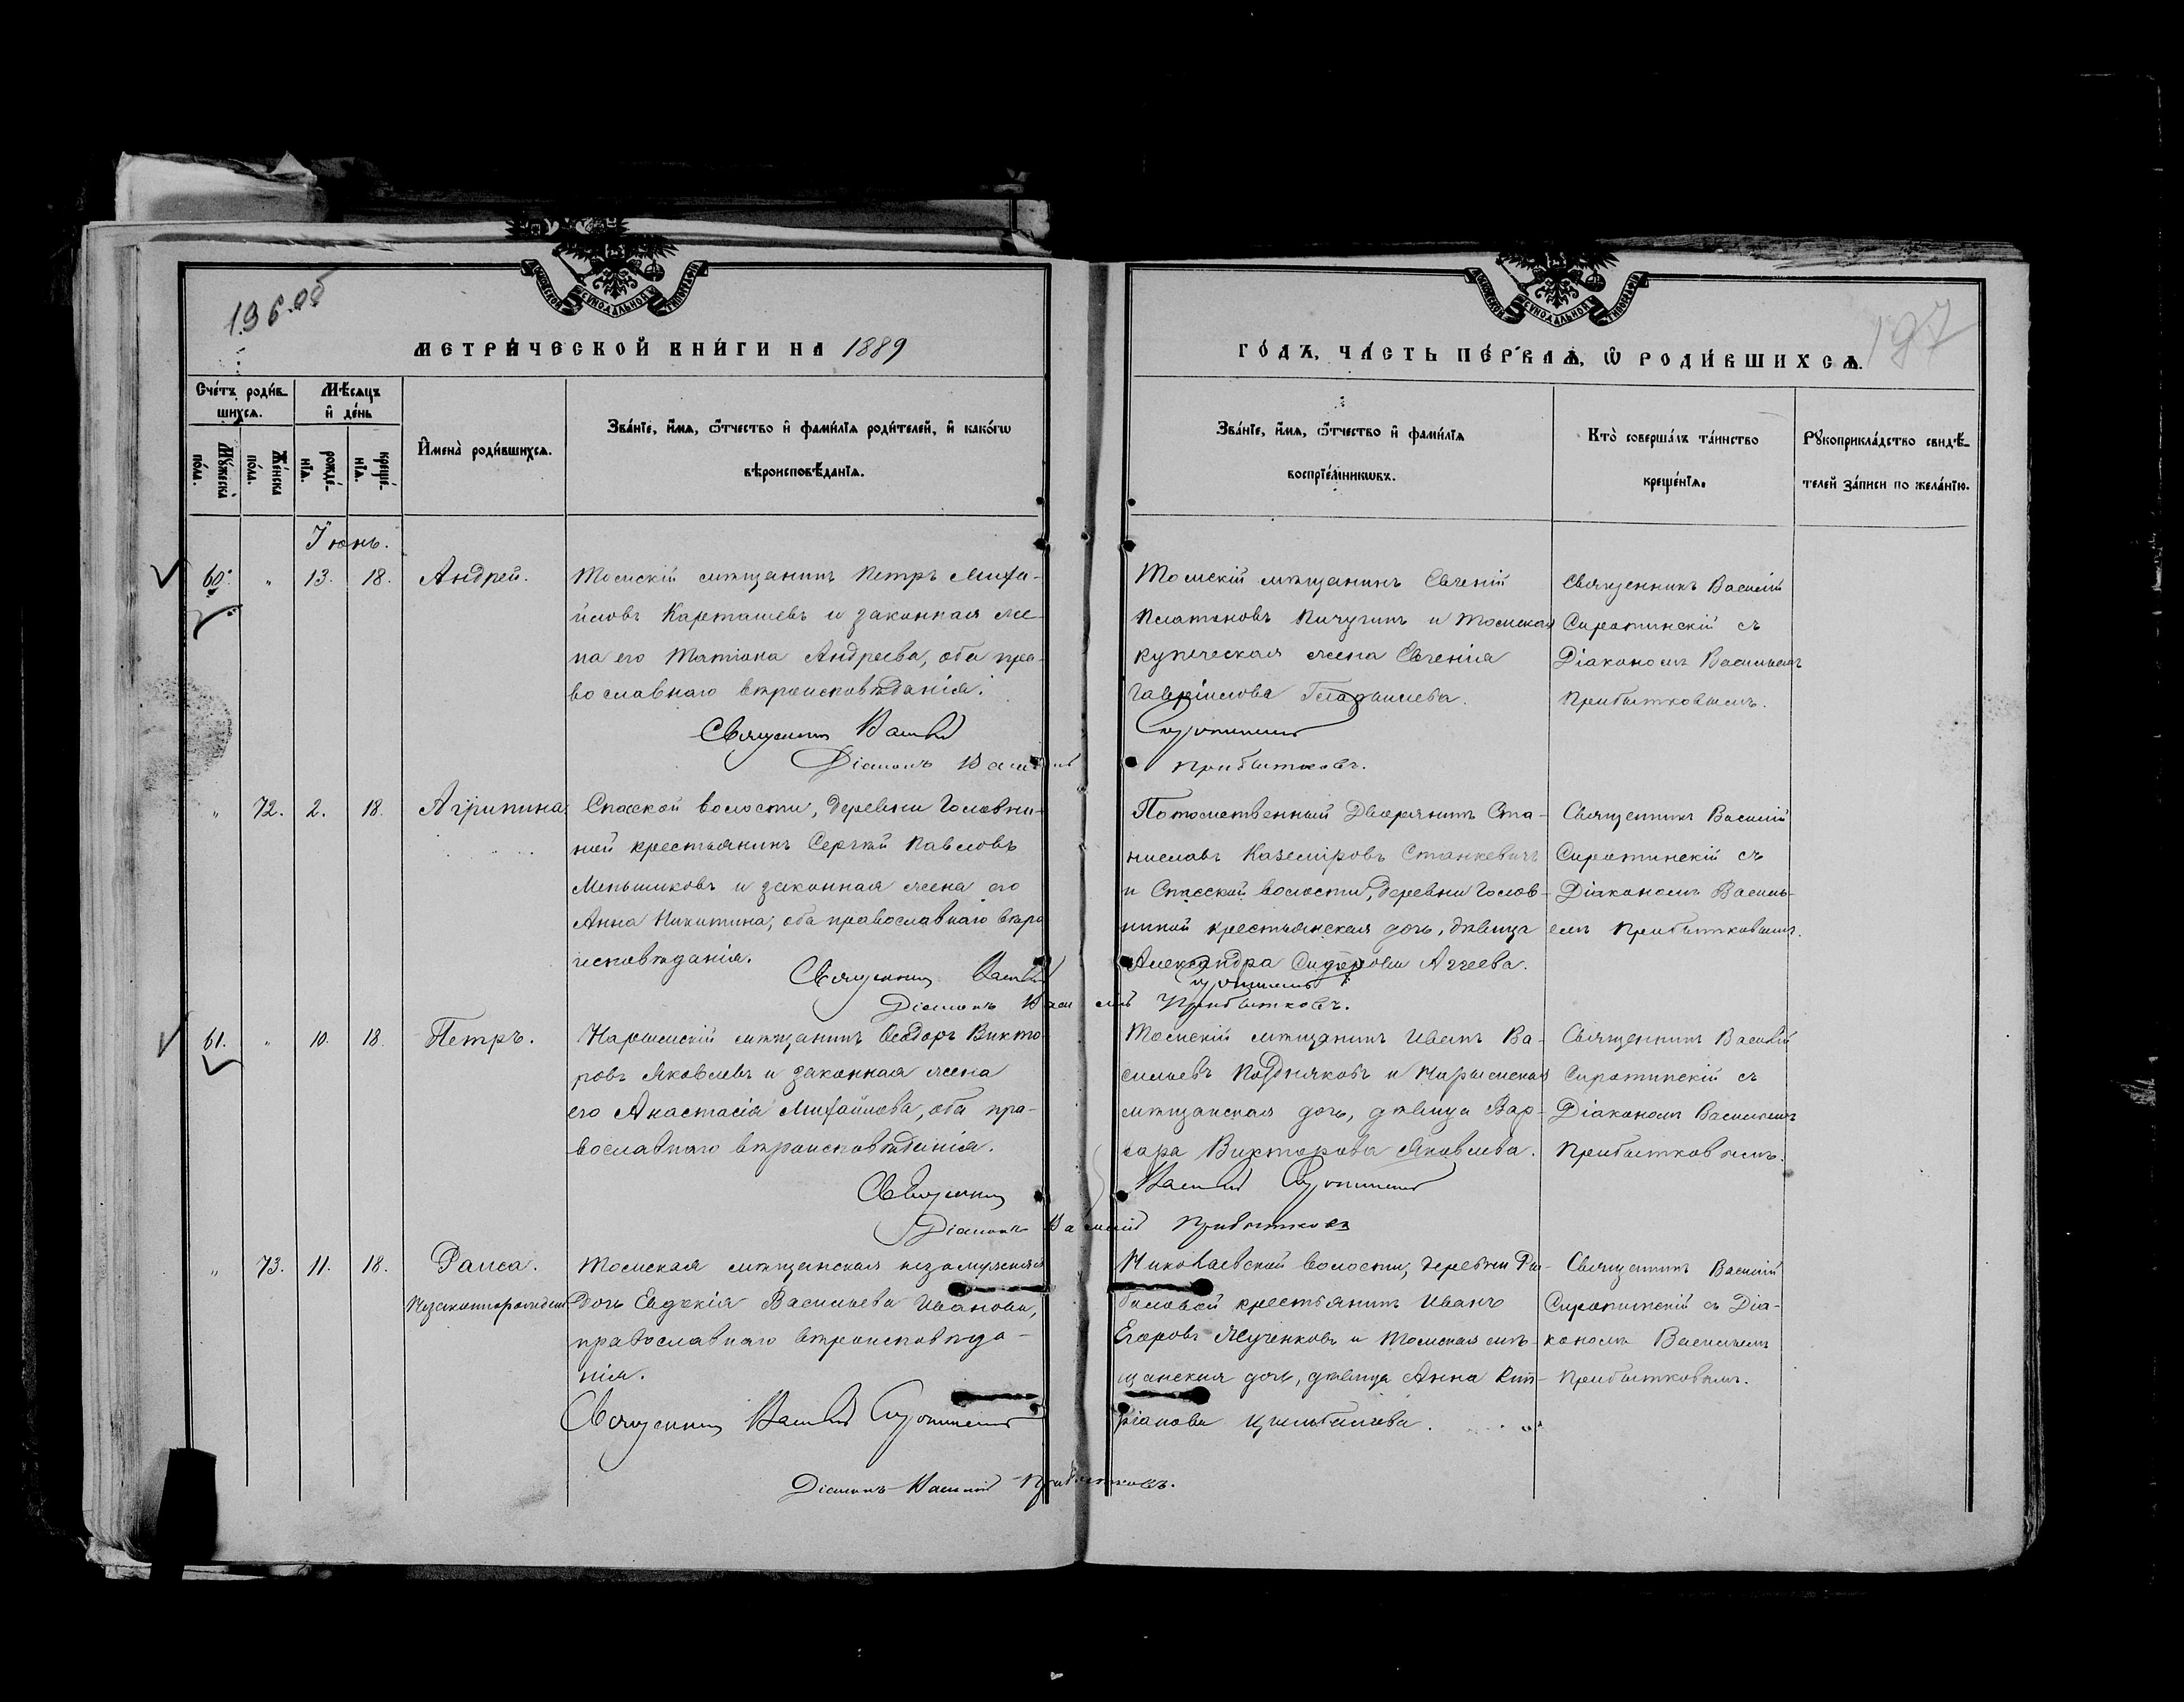 196 об
МЕТРИЧЕСКОЙ КНИГИ НА 1889
Счетъ родив-
шихся.
Мѣсяцъ
и день
Мужеска
пола.
Женска
пола.
рожде-
нія.
креще-
нія.
Имена родившихся.
Званіе, имя, отчество и фамилія родителей, и какого
вѣроисповѣданія.
Іюнь.
60. " 13. 18. Андрей.
Томскій мѣщанинъ Петръ Миха-
йловъ Карташевъ и законная же-
на его Татіана Андреева, оба пра-
вославнаго вѣроисповѣданія.
Священникъ Василій
Діаконъ Василій
" 72. 2. 18. Агрипина
Спасской волости, деревни Головни-
ной крестьянинъ Сергѣй Павловъ
Меньшиковъ и законная жена его
Анна Никитина, оба православнаго вѣро
исповѣданія.
Священникъ Василій
Діаконъ Василій
61. " 10. 18. Петръ.
Нарымскій мѣщанинъ Ѳеодоръ Викто
ровъ Яковлевъ и законная жена
его Анастасія Михайлова, оба пра-
вославнаго вѣроисповѣданія.
Священникъ
Діаконъ Василій
" 73. 11. 18. Раиса.
Незаконнорожден
Томская мѣщанская незамужняя
дочь Евдокія Васильева Иванова,
православнаго вѣроисповѣда-
нія.
Священникъ Василій Сиротинскій
Діаконъ Василій Прибытковъ.
197
ГОДЪ, ЧАСТЬ ПЕРВАЯ, Ѡ РОДИВШИХСЯ.
Званіе, имя, отчество и фамилія
воспріемниковъ.
Кто совершалъ таинство
крещенія.
Рукоприкладство свидѣ-
телей записи по желанію.
Томскій мѣщанинъ Евгеній
Платоновъ Пичугинъ и Томская
купеческая жена Евгенія
Гавріилова
Сиротинскій
Прибытковъ.
Священникъ Василій
Сиротинскій съ
Діакономъ Васильемъ
Прибытковымъ.
Потомственный Дворянинъ Ста-
ниславъ Каземіровъ Станкевичъ
и Спасской волости, деревни Голов-
ниной крестьянская дочь, дѣвица
Александра Сидорова Агеева.
Сиротинскій
Прибытковъ.
Священникъ Василій
Сиротинскій съ
Діакономъ Василь-
емъ Прибытковымъ.
Томскій мѣщанинъ Иванъ Ва-
сильевъ Поздняковъ и Нарымская
мѣщанская дочь, дѣвица Вар-
вара Викторова Яковлева.
Василій Сиротинскій
Прибытковъ
Священникъ Василій
Сиротинскій съ
Діакономъ Васильемъ
Прибытковымъ.
Николаевской волости, деревни Ры-
баловой крестьянинъ Иванъ
Егоровъ и Томская мѣ-
щанская дочь, дѣвица Анна Кип-
ріанова
Священникъ Василій
Сиротинскій съ Діа-
кономъ Васильемъ
Прибытковымъ.